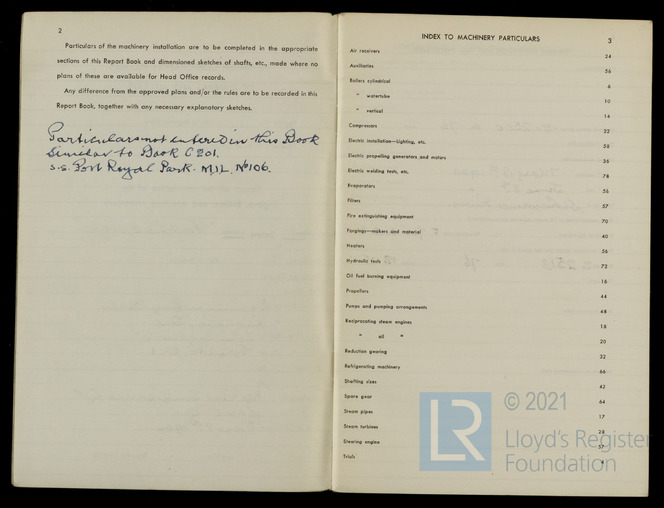 2
Particulars of the machinery installation are to be completed in the appropriate
sections of this Report Book and dimensioned sketches of shafts, etc., made where no
plans of these are available for Head Office records.
Any difference from the approved plans and/or the rules are to be recorded in this
Report Book, together with any necessary explanatory sketches.
Particulars not entered in this Book
Similar to Book C 201.
s.s. Port Royal Park. M.I.L. Nº106.
INDEX TO MACHINERY PARTICULARS 3
Air receivers 24
Auxiliaries 56
Boilers cylindrical 6
" watertube 10
" vertical 14
Compressors 22
Electric installation—Lighting, etc. 58
Electric propelling generators and motors 36
Electric welding tests, etc. 78
Evaporators 56
Filters 57
Fire extinguishing equipment 70
Forgings—makers and material 40
Heaters 56
Hydraulic tests 72
Oil fuel burning equipment 16
Propellers 44
Pumps and pumping arrangements 48
Reciprocating steam engines 18
" oil " 20
Reduction gearing 32
Refrigerating machinery 66
Shafting sizes 42
Spare gear 64
Steam pipes 17
Steam turbines 28
Steering engine 57
Trials
LR
© 2021
Lloyd's Register
Foundation